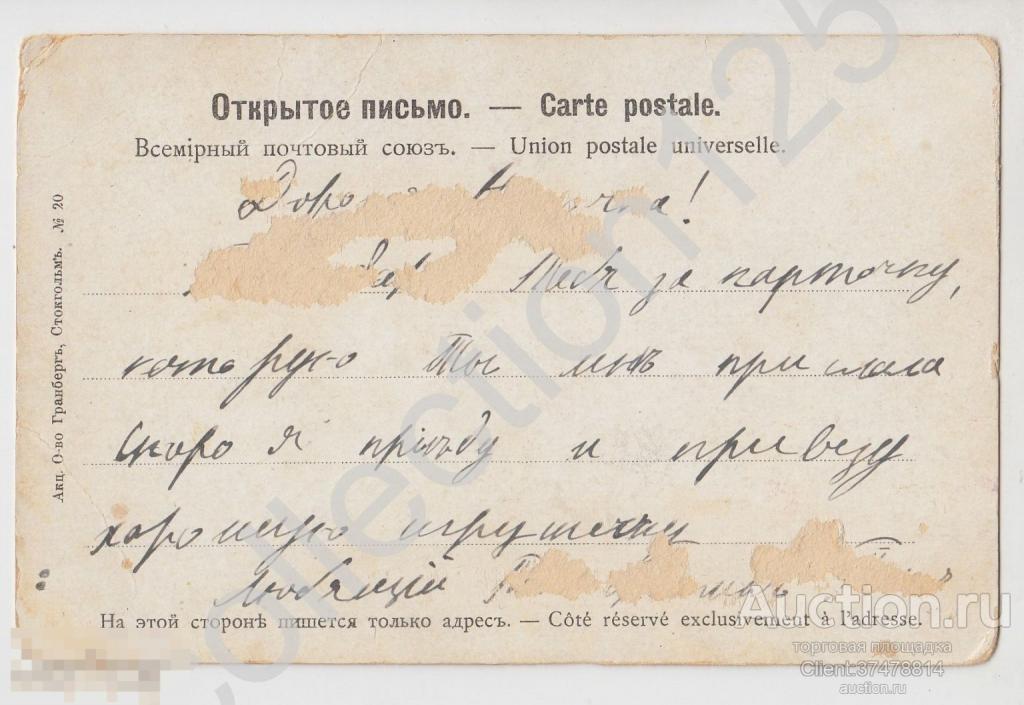 Открытое письмо. — Carte postale.
Всемірный почтовый союзъ. — Union postale universelle.
Акц. О-во Гранбергъ, Стокгольмъ. № 20
Тебя за карточку,
которую Ты мнѣ прислала
Скоро я пріѣду и привезу
хорошую игрушечку
Любящій
На этой сторонѣ пишется только адресъ. — Côté réservé exclusivement à l'adresse.
collection 125
Auction.ru
торговая площадка
Client:37478814
auction.ru